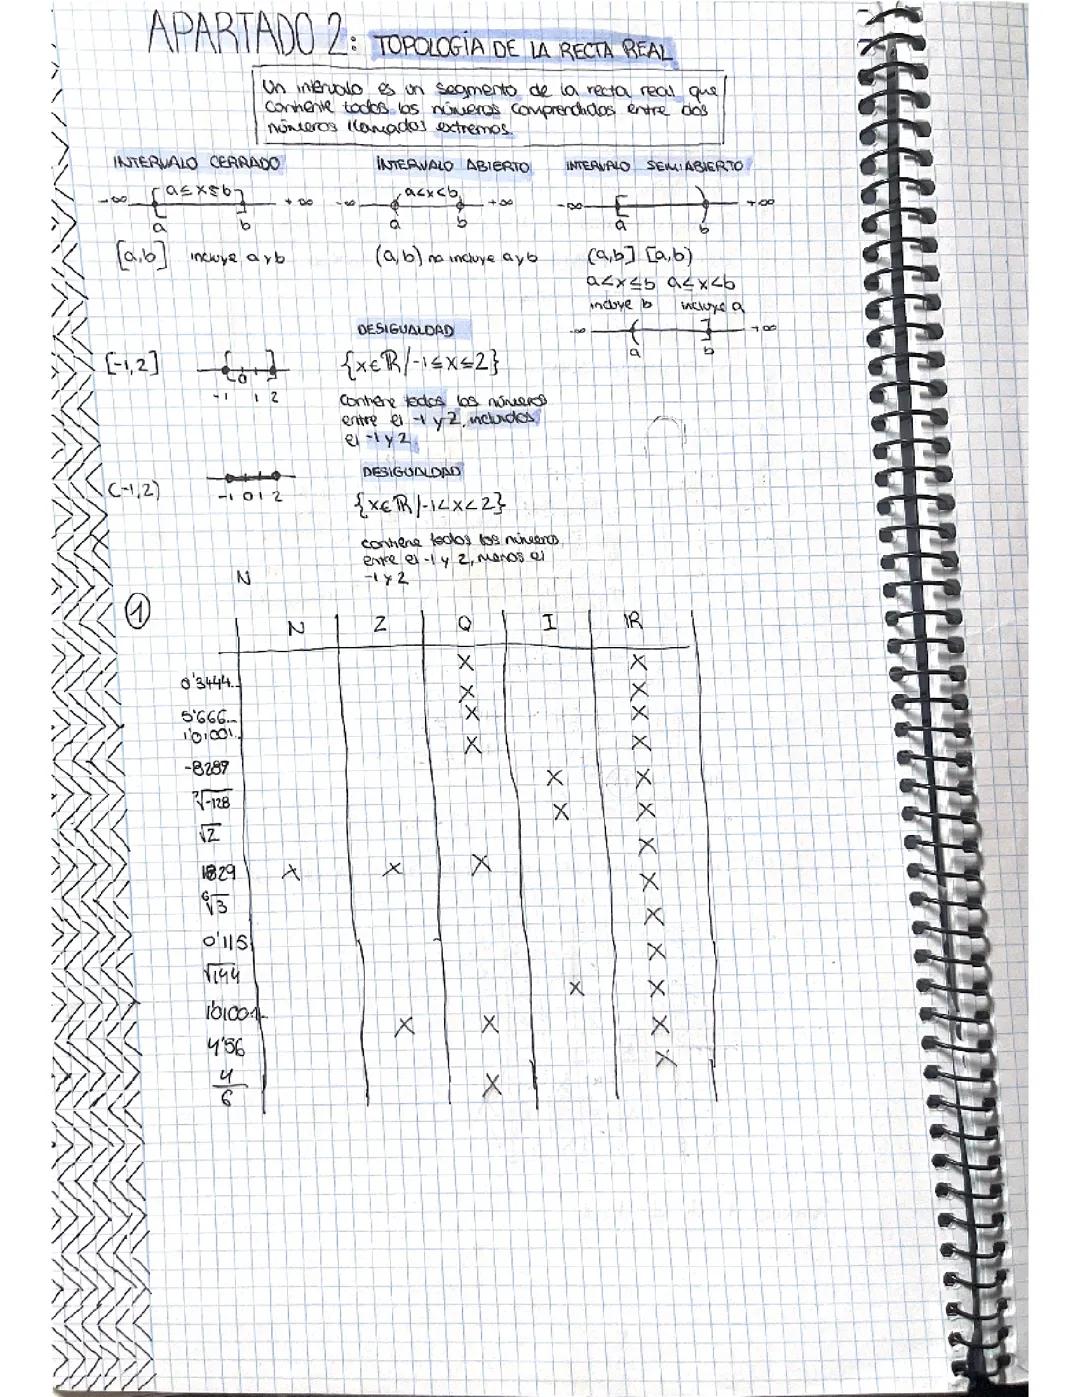 APARTADO 2: TOPOLOGÍA DE LA RECTA REAL
Un intervalo es un segmento de la recta real que
contiene todos los números comprendidos entre dos
números llamados extremos.
INTERVALO CERRADO INTERVALO ABIERTO INTERVALO SEMIABIERTO
-∞ [ a≤x≤b ] +∞ -∞ ( a<x<b ) +∞ -∞ [ ) +∞
a b a b a b
[a,b] incluye a y b (a,b) no incluye a y b (a,b] [a,b)
a<x≤b a≤x<b
incluye b incluye a
-∞ ( ] +∞
a b
DESIGUALDAD
[-1,2] {x∈ℝ/-1≤x≤2}
0
-1 1 2
contiene todos los números
entre el -1 y 2, incluidos
el -1 y 2.
DESIGUALDAD
(-1,2) -1 0 1 2 {x∈ℝ/-1<x<2}
contiene todos los números
entre el -1 y 2, menos el
-1 y 2
N
1
N Z Q I IR
X X
0'3444.. X X
5'666... X X
1'01001.. X X
-8289 X X
⁷√-128 X X
√2 X
1829 X X X
⁶√3 X
X
0'115 X
√144 X X
1'01001.. X X X
4'56 X
4/6 X